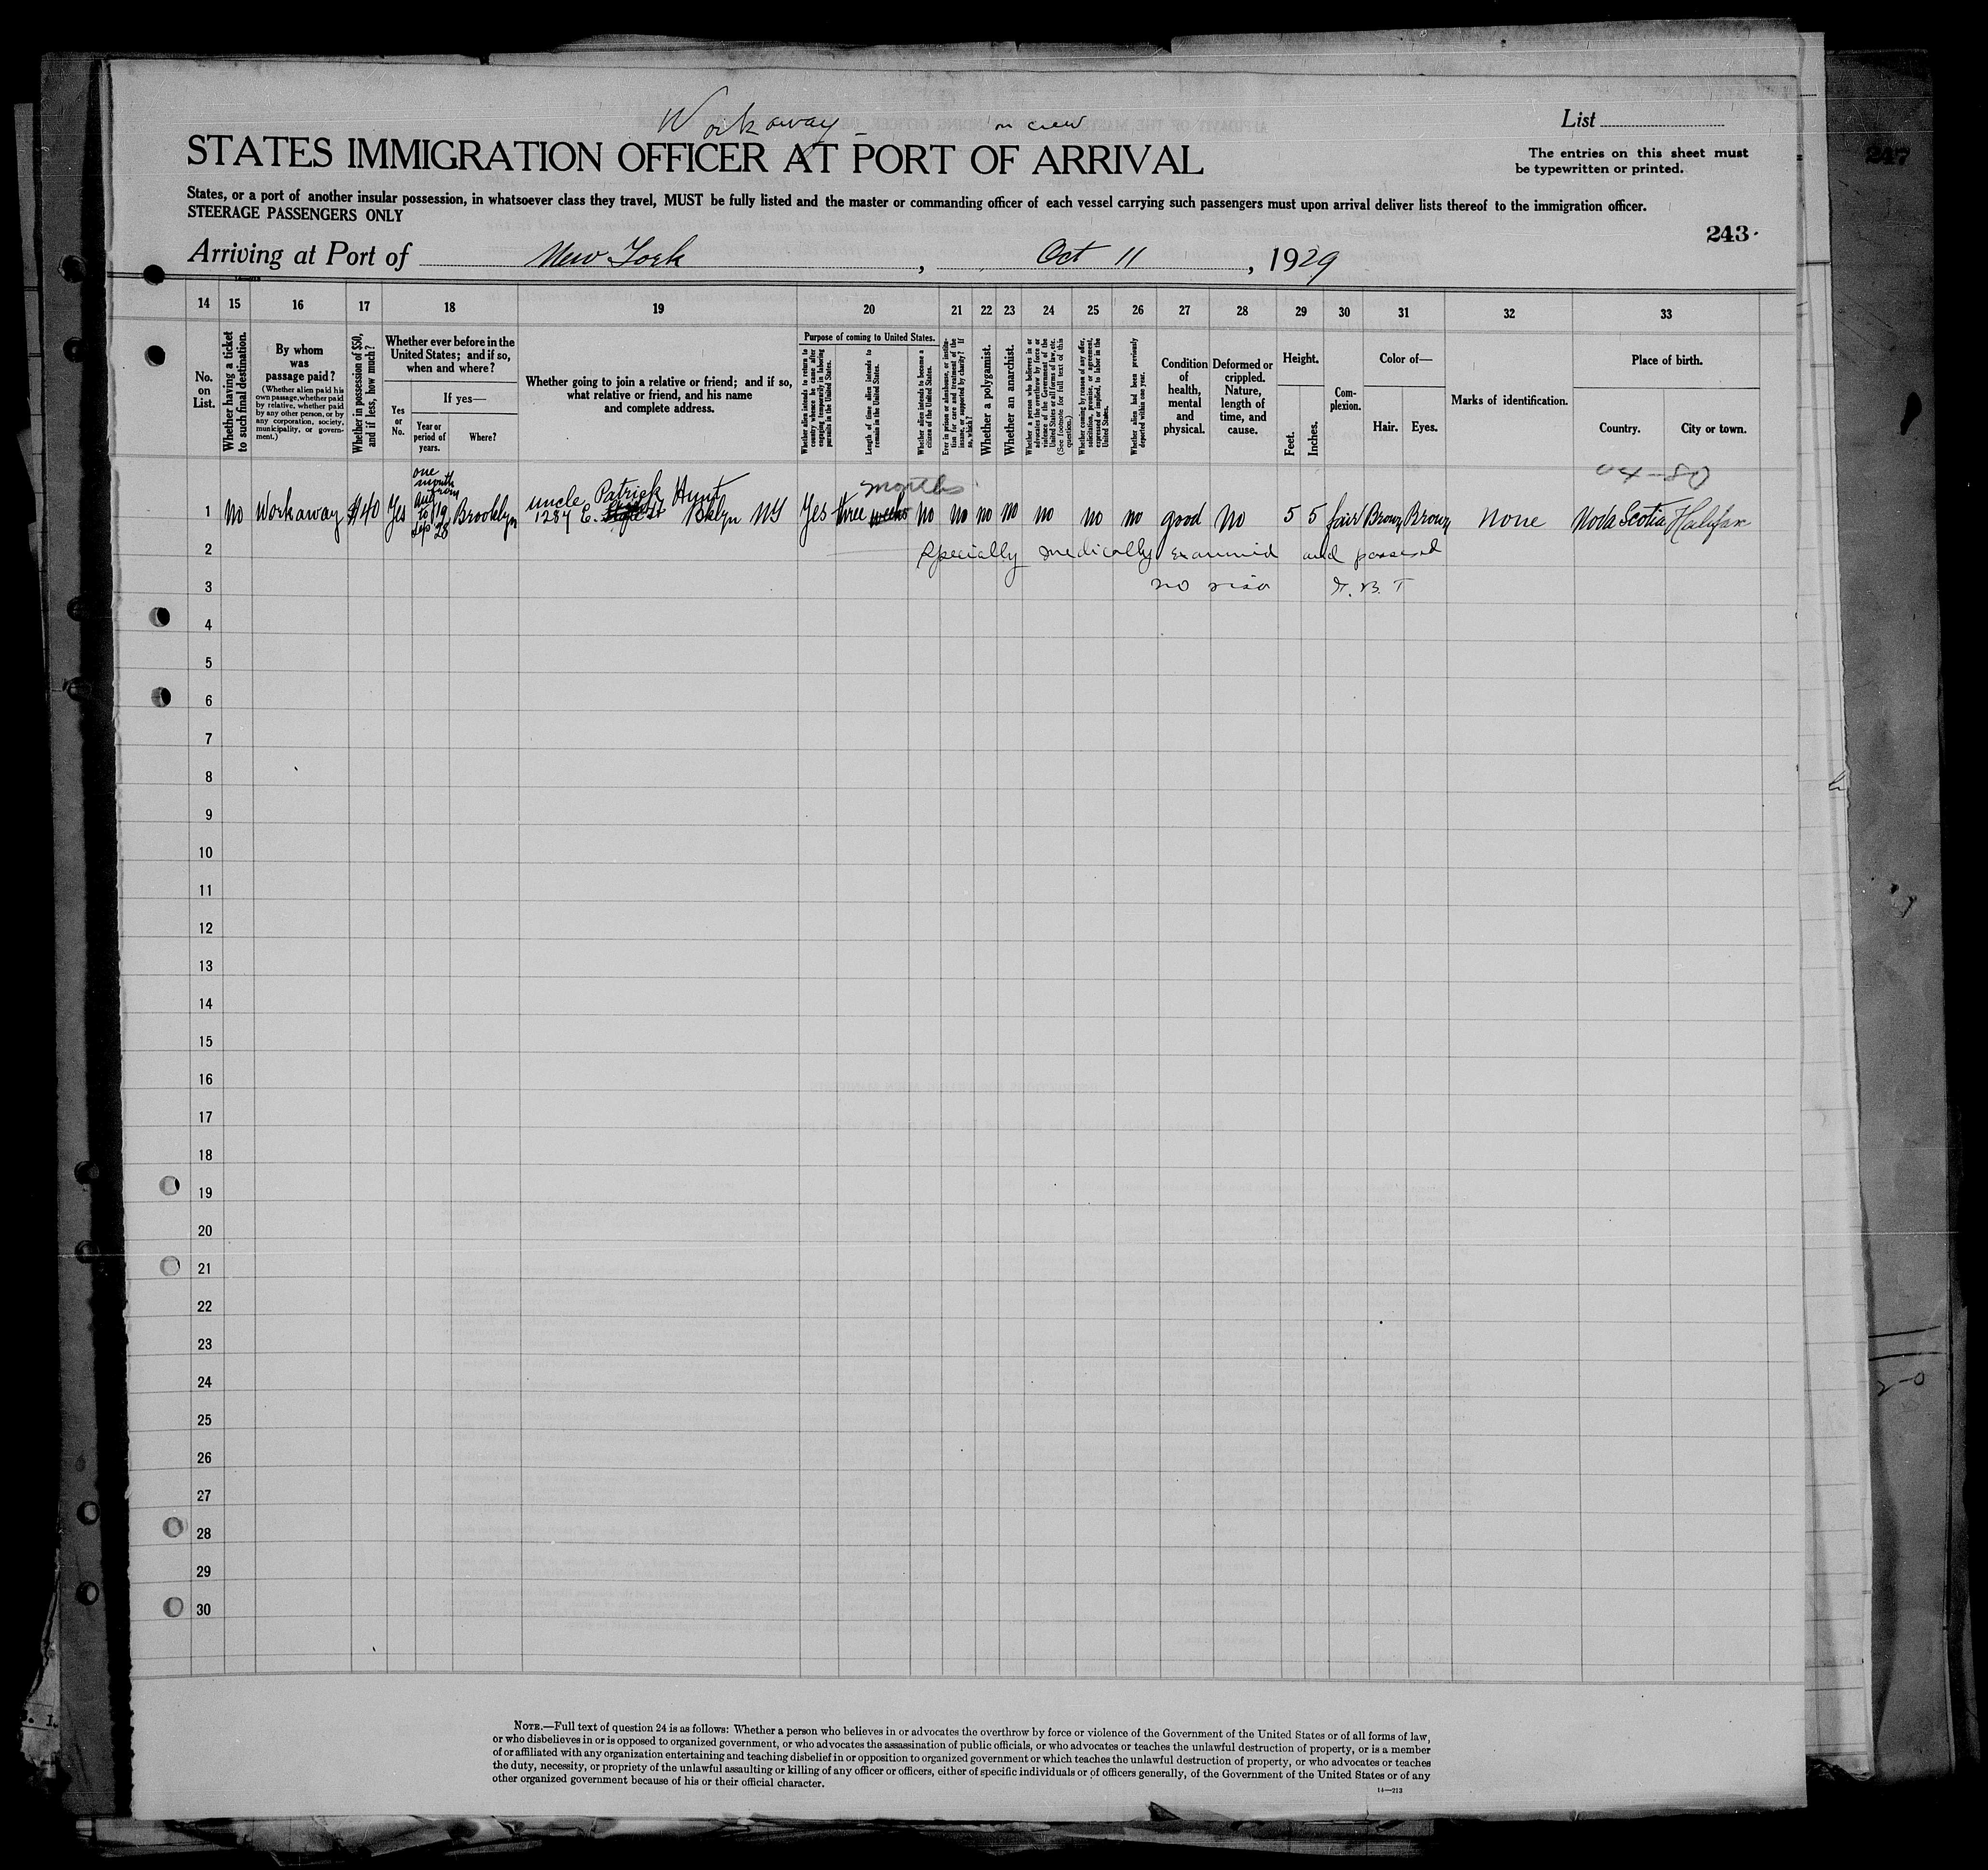 Workaway - on crew
List
STATES IMMIGRATION OFFICER AT PORT OF ARRIVAL
The entries on this sheet must
be typewritten or printed.
States, or a port of another insular possession, in whatsoever class they travel, MUST be fully listed and the master or commanding officer of each vessel carrying such passengers must upon arrival deliver lists thereof to the immigration officer.
STEERAGE PASSENGERS ONLY
247
243
Arriving at Port of New York, Oct 11, 1929
14 15 16 17 18 19 20 21 22 23 24 25 26 27 28 29 30 31 32 33
No. on List.
Whether having a ticket to such final destination.
By whom was passage paid?
(Whether alien paid his own passage, whether paid by relative, whether paid by any other person, or by any corporation, society, municipality, or government.)
Whether in possession of $50, and if less, how much?
Whether ever before in the United States; and if so, when and where?
Yes or No.
If yes—
Year or period of years.
Where?
Whether going to join a relative or friend; and if so, what relative or friend, and his name and complete address.
Purpose of coming to United States.
Whether alien intends to return to country whence he came after engaging temporarily in laboring pursuits in the United States.
Length of time alien intends to remain in the United States.
Whether alien intends to become a citizen of the United States.
Ever in prison or almshouse, or institution for care and treatment of the insane, or supported by charity? If so, which?
Whether a polygamist.
Whether an anarchist.
Whether a person who believes in or advocates the overthrow by force or violence of the Government of the United States or all forms of law, etc. (See footnote for full text of this question.)
Whether coming by reason of any offer, solicitation, promise, or agreement, expressed or implied, to labor in the United States.
Whether alien had been previously deported within one year.
Condition of health, mental and physical.
Deformed or crippled. Nature, length of time, and cause.
Height.
Feet.
Inches.
Complexion.
Color of—
Hair.
Eyes.
Marks of identification.
Place of birth.
Country.
City or town.
one
month
months
uncle Patrick Hunt
1 No Workaway $40 Yes Brooklyn 1284 E. Bklyn NY Yes three weeks No No no no no no no good No 5 5 fair Brown Brown none Nova Scotia Halifax
2 Specially medically examined and passed
3
4
5
6
7
8
9
10
11
12
13
14
15
16
17
18
19
20
21
22
23
24
25
26
27
28
29
30
NOTE.—Full text of question 24 is as follows: Whether a person who believes in or advocates the overthrow by force or violence of the Government of the United States or of all forms of law,
or who disbelieves in or is opposed to organized government, or who advocates the assassination of public officials, or who advocates or teaches the unlawful destruction of property, or is a member
of or affiliated with any organization entertaining and teaching disbelief in or opposition to organized government or which teaches the unlawful destruction of property, or who advocates or teaches
the duty, necessity, or propriety of the unlawful assaulting or killing of any officer or officers, either of specific individuals or of officers generally, of the Government of the United States or of any
other organized government because of his or their official character.
14—213